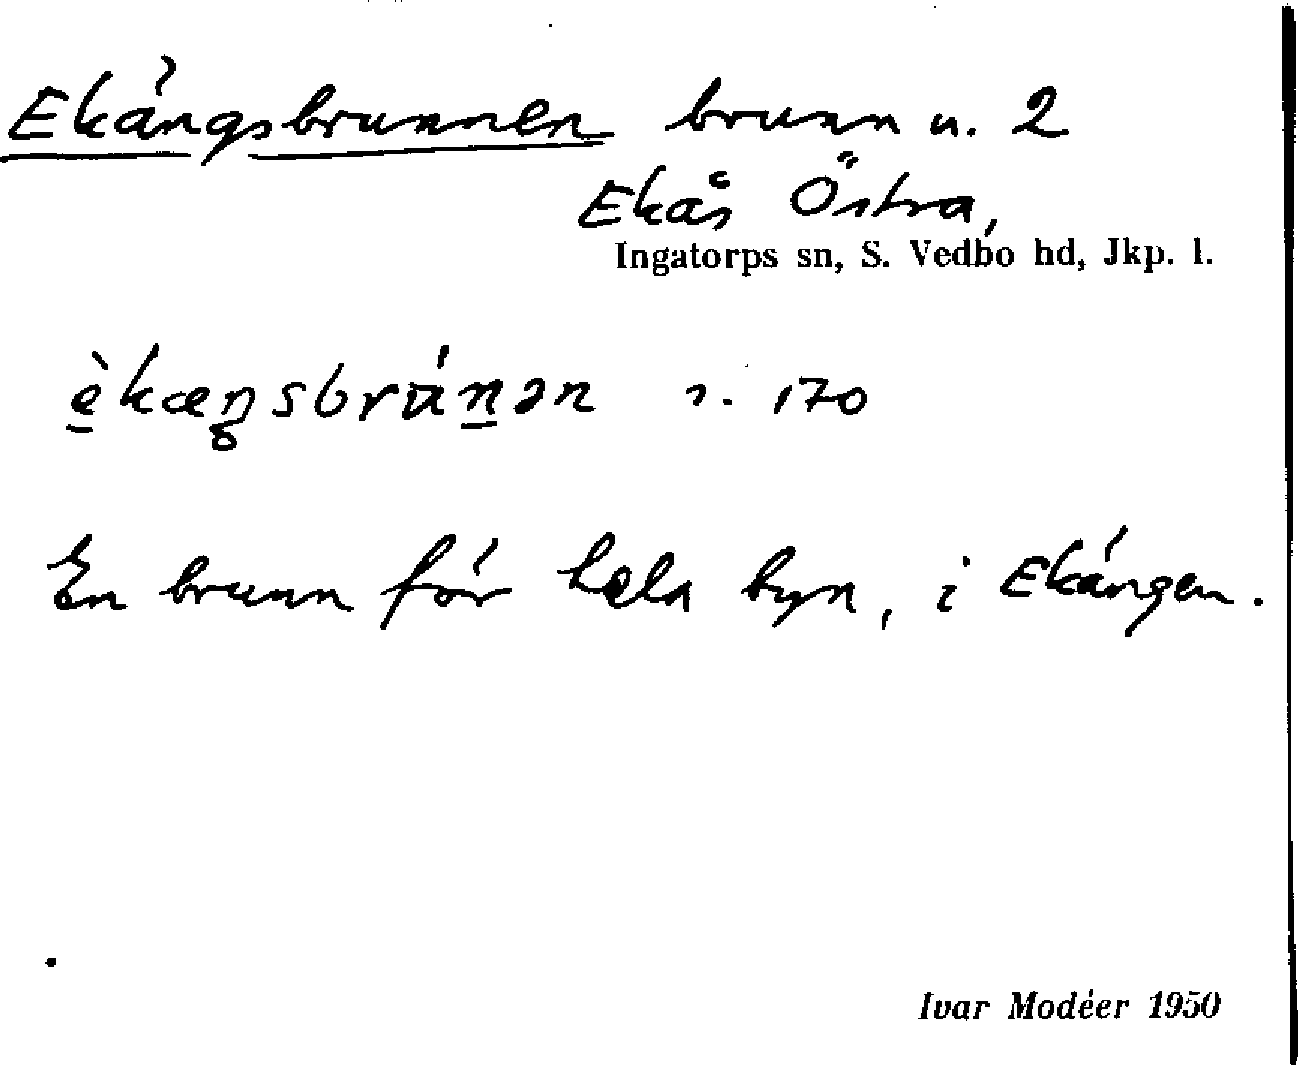 Ekängsbrunnen brunn u. 2
Ekås Östra,
Ingatorps sn, S. Vedbo hd, Jkp. l.
èkæŋsbrúnən 170
En brunn för hela byn, i Ekängen.
Ivar Modéer 1950